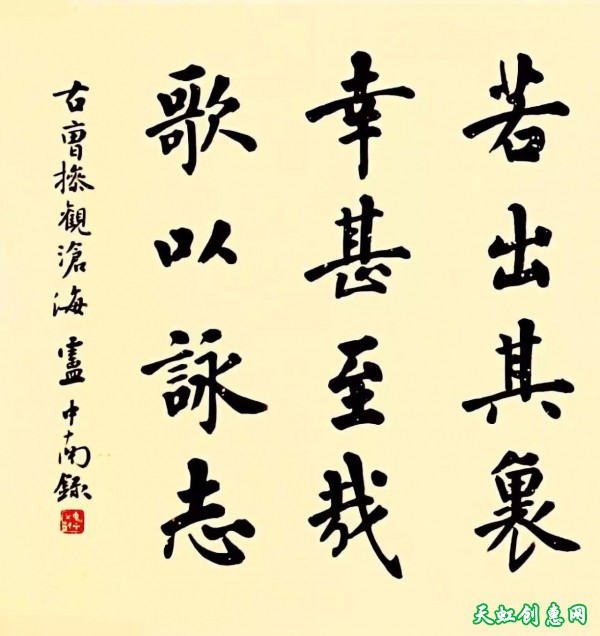 若出其裏
幸甚至哉
歌以詠志
古曹操觀滄海 盧中南錄
天虹创惠网